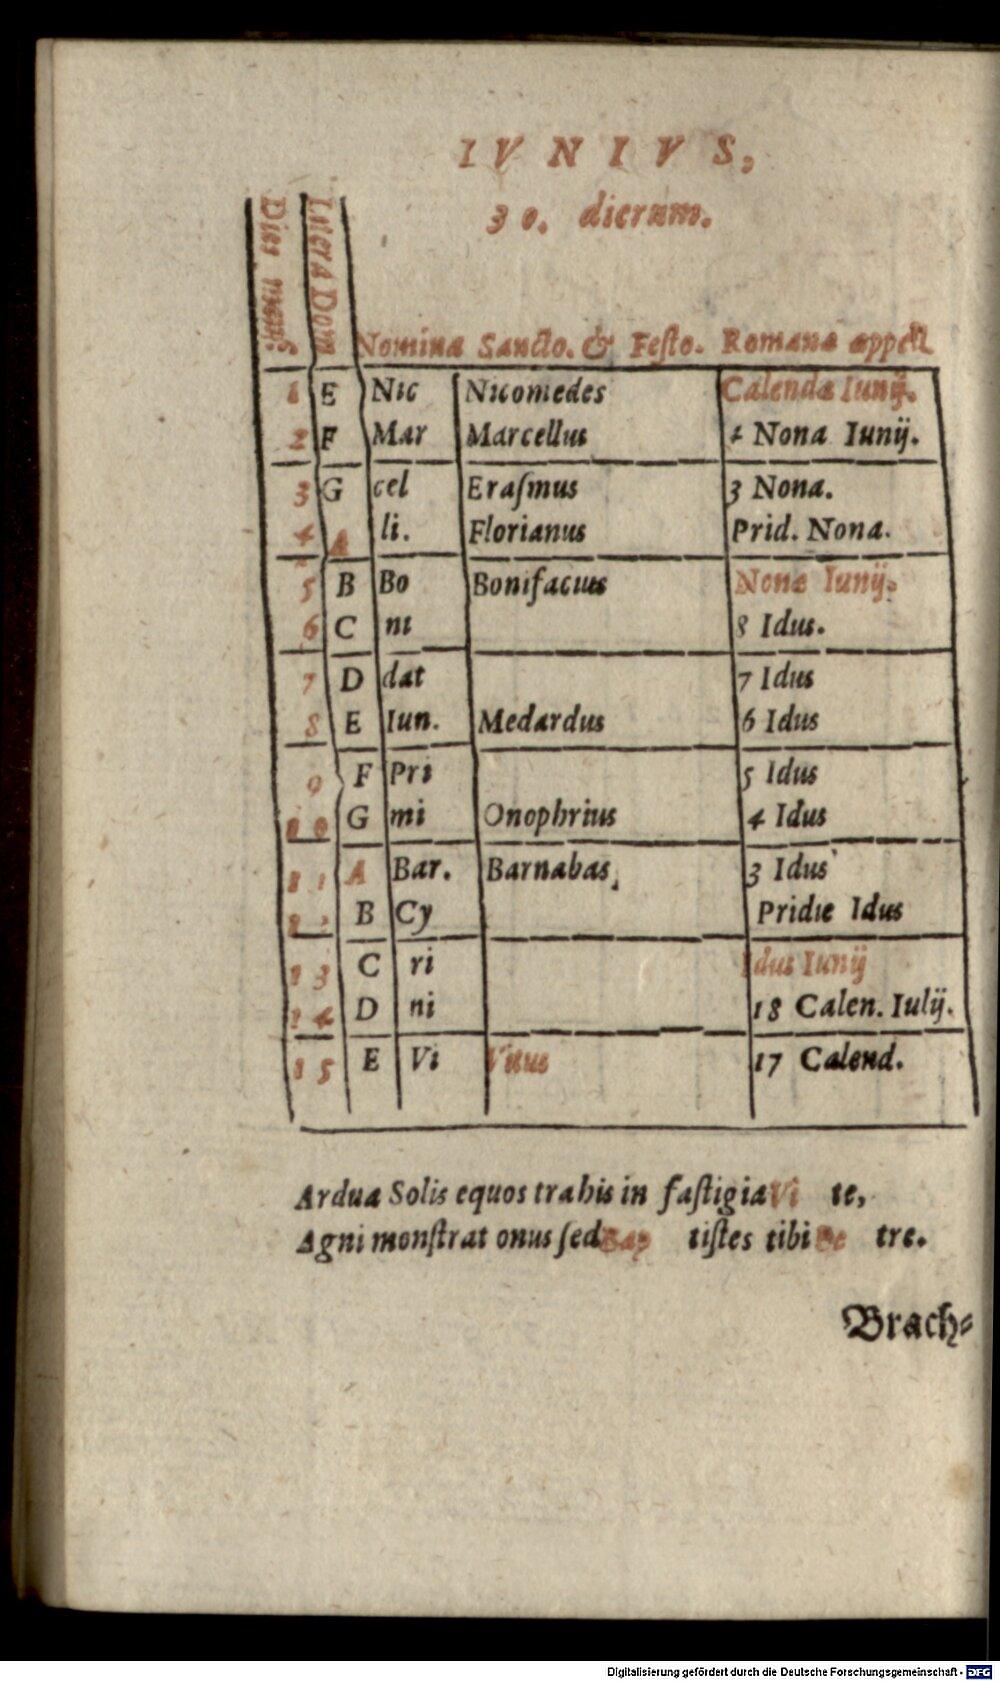 IVNIVS,
30. dierum.
Dies mensʒ.
Litera Dom
Nomina Sancto. & Festo. Romana appell
1 E Nic Nicomedes Calendæ Iunij.
2 F Mar Marcellus 4 Nona Iunij.
3 G cel Eraſmus 3 Nona.
4 A li. Florianus Prid. Nona.
5 B Bo Bonifacius Nonæ Iunij.
6 C ni 8 Idus.
7 D dat 7 Idus
8 E Iun. Medardus 6 Idus
9 F Pri 5 Idus
10 G mi Onophrius 4 Idus
11 A Bar. Barnabas, 3 Idus
12 B Cy Pridie Idus
13 C ri Idus Iunij
14 D ni 18 Calen. Iulij.
15 E Vi Vitus 17 Calend.
Ardua Solis equos trahis in faſtigia Vi te,
Agni monſtrat onus ſed Bap tiſtes tibi Pe tre.
Brach⸗
Digitalisierung gefördert durch die Deutsche Forschungsgemeinschaft - DFG